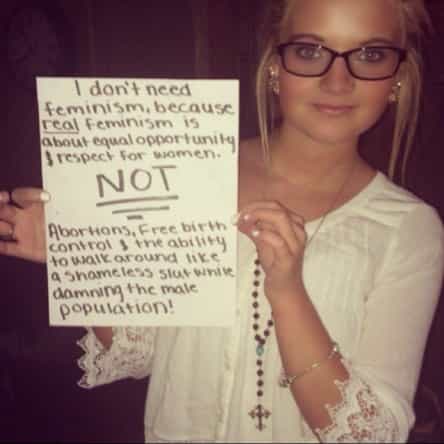 I don't need
feminism, because
real feminism is
about equal opportunity
& respect for women.
NOT
Abortions, Free birth
control & the ability
to walk around like
a shameless slut while
damning the male
population!